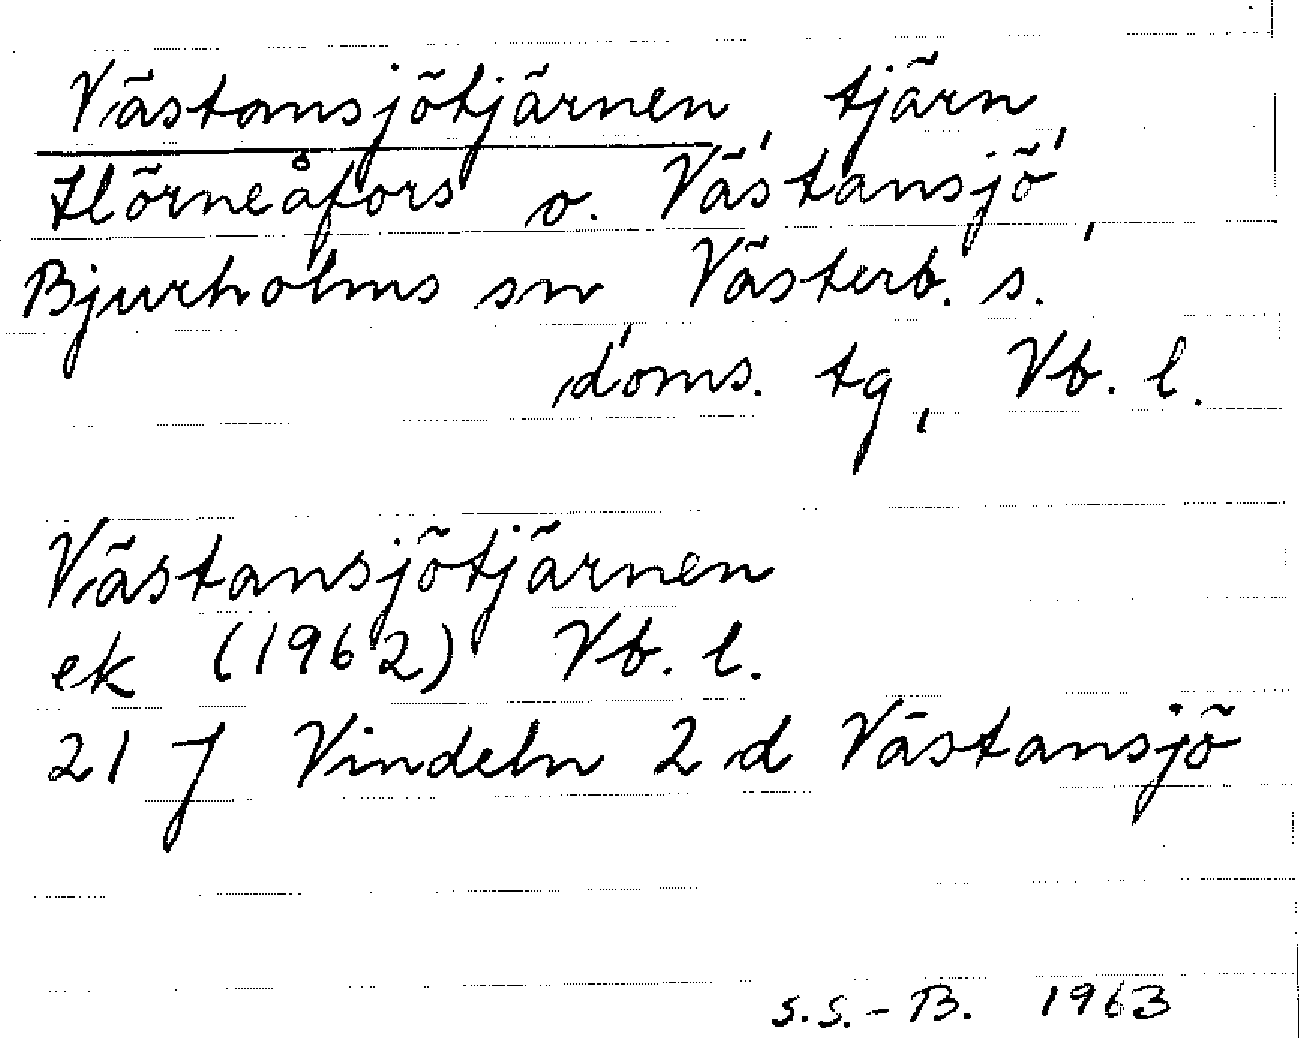 Västansjötjärnen, tjärn,
Hörneåfors o. Västansjö,
Bjurholms sn, Västerb. s.
doms. tg, Vb. l.
Västansjötjärnen
ek (1962) Vb. l.
21 J Vindeln 2 d Västansjö
S.S.-B. 1963